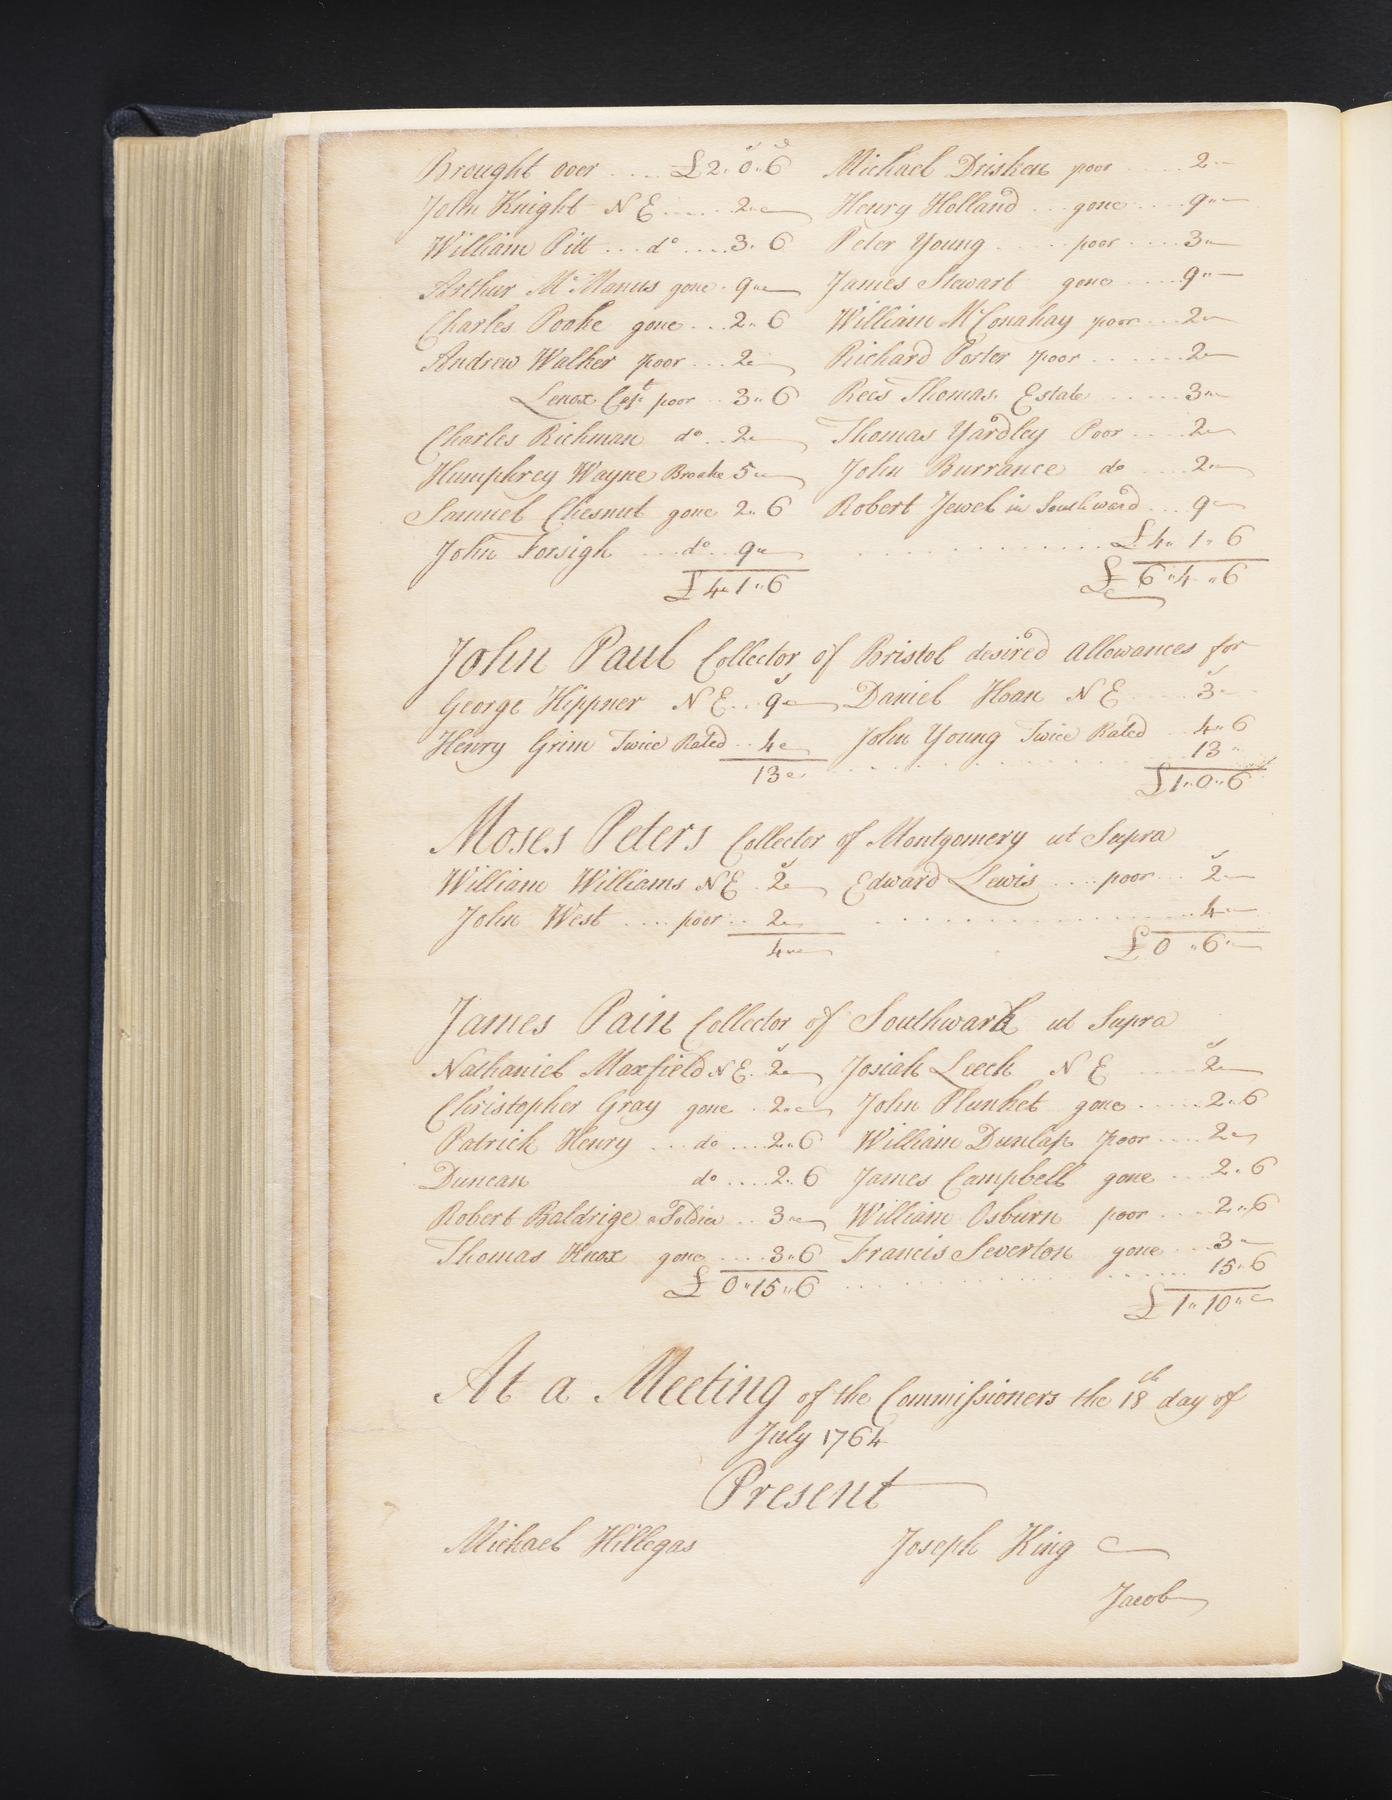 Brought over .... £2..0..6
John Knight N E ..... 2..
William Pitt ... do .... 3..6
Arthur McManus gone . 9..
Charles Pooke gone ... 2..6
Andrew Walker poor ... 2..
Lenox Capt. poor .. 3..6
Charles Richman do .. 2..
Humphrey Wayne Broake 5..
Samuel Chesnut gone 2..6
John Forsigh .... do .. 9..
£4..1..6
Michael Drisken poor ..... 2..
Henry Holland ... gone .... 9..
Peter Young ..... poor .... 3..
James Stewart gone .... 9..
William McConahay poor ... 2..
Richard Porter poor ....... 2..
Rees Thomas. Estate ..... 3..
Thomas Yardley Poor .... 2..
John Burrance do .... 2..
Robert Jewel in Southward ... 9..
£4..1..6
£6..4..6
John Paul Collector of Bristol desired allowances for
George Hippner N E .. 9.. Daniel Hoan N E .... 3..
Henry Grim Twice Rated .. 4.. John Young Twice Rated .. 4..6
13.. 13..
£1..0..6
Moses Peters Collector of Montgomery ut Supra
William Williams N E . 2.. Edward Lewis .... poor ... 2..
John West .... poor .. 2.. 4..
4.. £0..6..
James Pain Collector of Southwark ut Supra
Nathaniel Maxfield N E . 2.. Josiah Leech N E .... 2..
Christopher Gray gone . 2.. John Plunket gone ...... 2..6
Patrick Henry ... do .... 2..6 William Dunlap poor .... 2..
Duncan do .... 2..6 James Campbell gone ... 2..6
Robert Baldrige a Soldier .. 3.. William Osburn poor .... 2..6
Thomas Knox gone .... 3..6 Francis Severton gone ... 3..
£0..15..6 15..6
£1..10..
At a Meeting of the Commissioners the 18th day of
July 1764
Present
Michael Hillegas Joseph King
Jacob